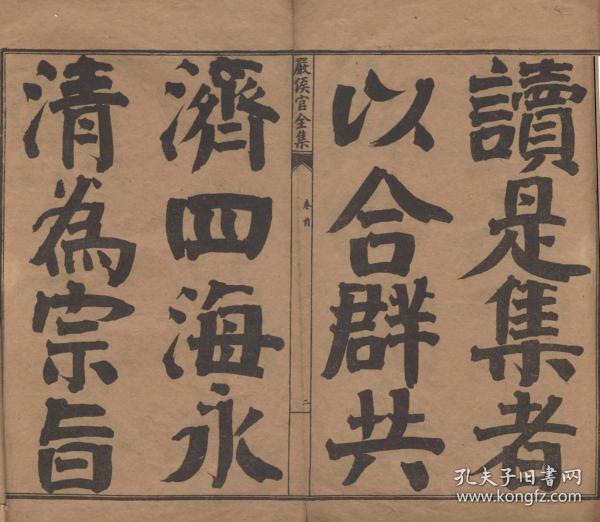 讀是集者
以合群共
嚴侯官全集
卷首
二
濟四海永
清為宗旨
孔夫子旧书网
www.kongfz.com